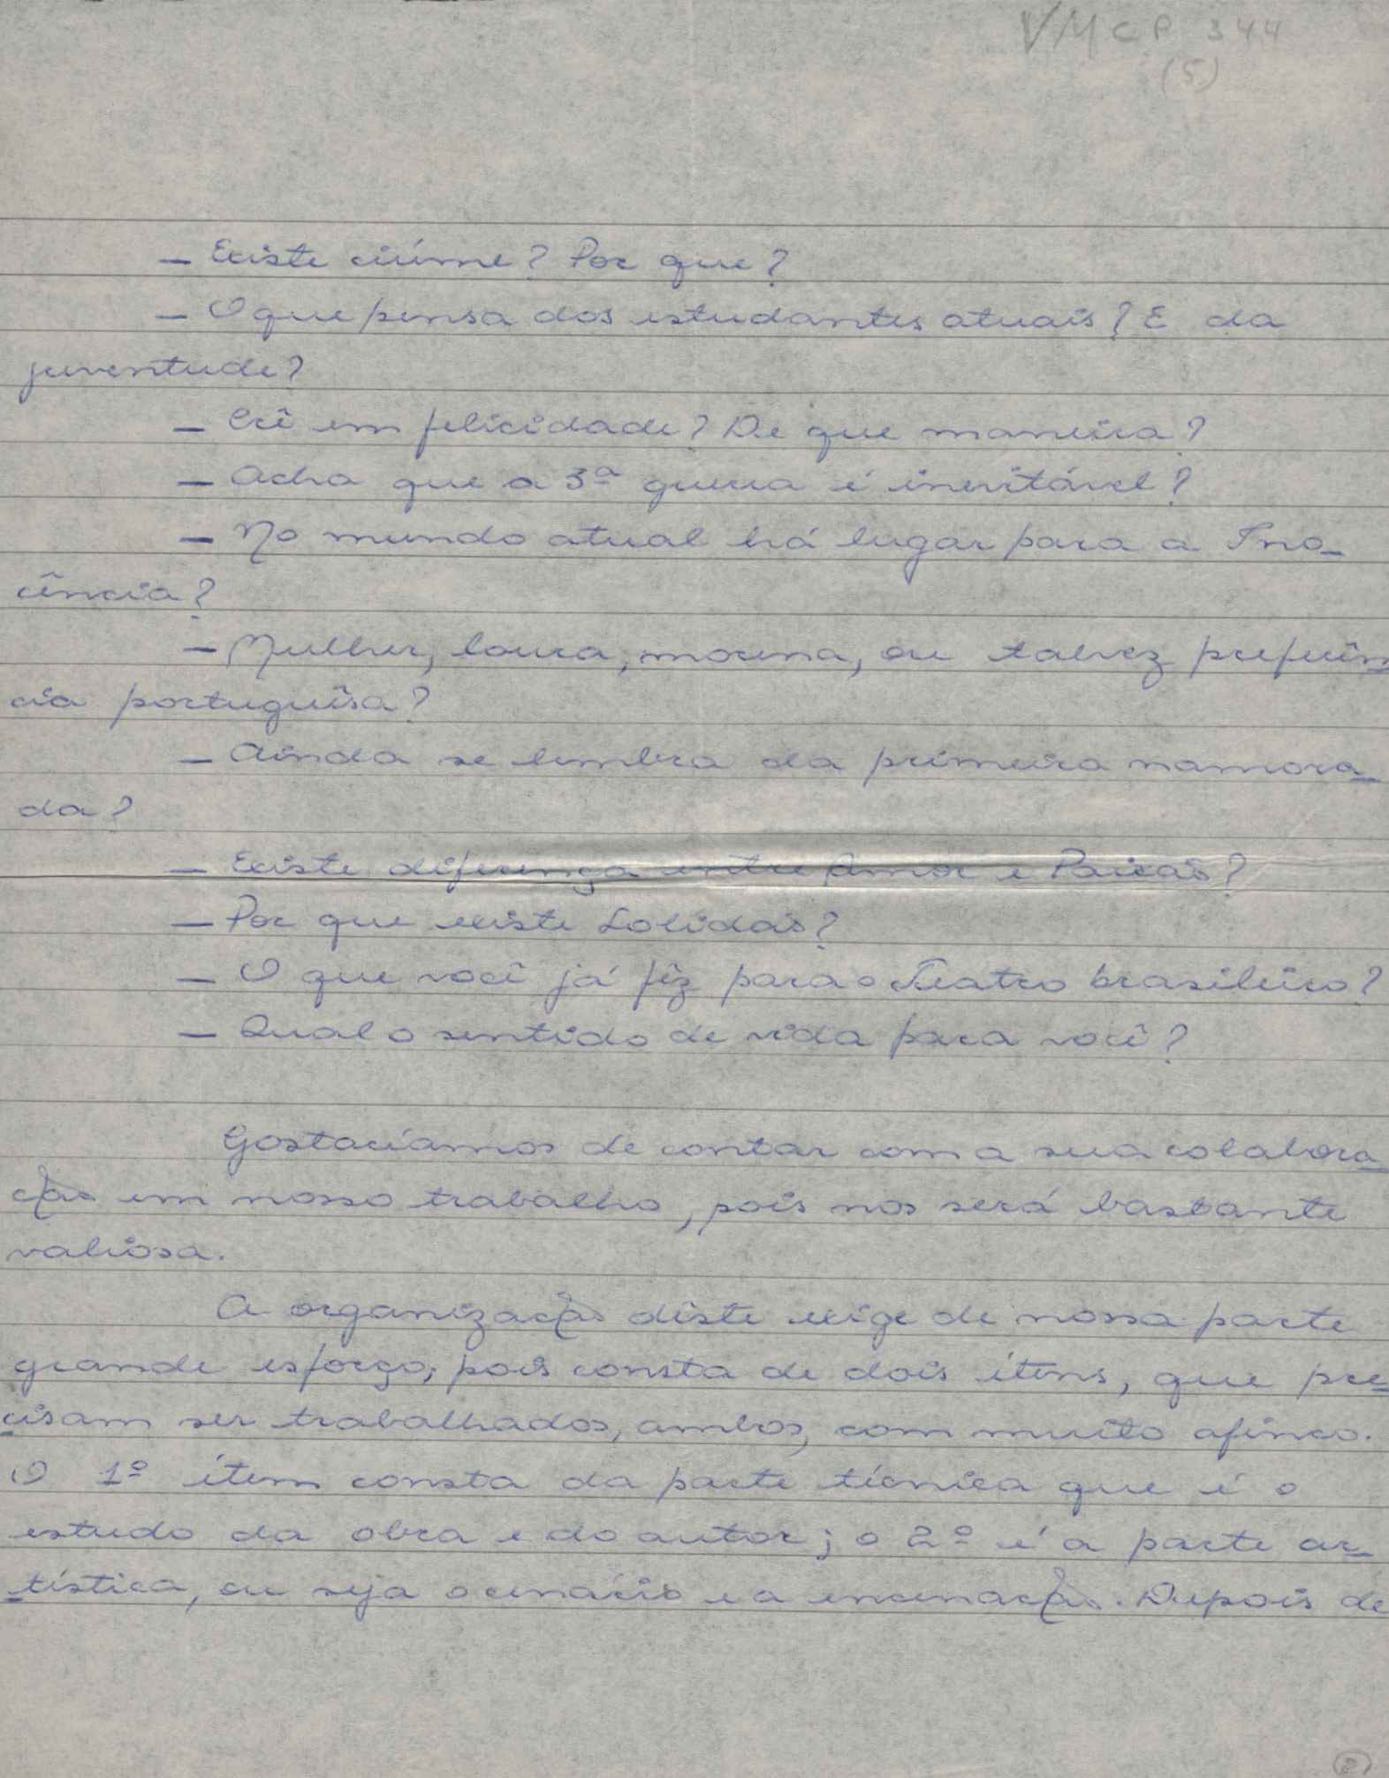 VMCP 344
(5)
- Existe ciúme? Por que?
- O que pensa dos estudantes atuais? E da
juventude?
- Crê em felicidade? De que maneira?
- Acha que a 3ª guerra é inevitável?
- No mundo atual há lugar para a Ino-
cência?
- Mulher, loura, morena, ou talvez preferên
cia portuguêsa?
- Ainda se lembra da primeira namora-
da?
- Existe diferença entre Amor e Paixão?
- Por que existe Solidão?
- O que você já fêz para o Teatro brasileiro?
- Qual o sentido de vida para você?
Gostaríamos de contar com a sua colabora-
ção em nosso trabalho, pois nos será bastante
valiosa.
A organização dêste exige de nossa parte
grande esforço; pois consta de dois ítens, que pre-
cisam ser trabalhados, ambos, com muito afinco.
O 1º ítem consta da parte técnica que é o
estudo da obra e do autor; o 2º é a parte ar-
tística, ou seja o cenário e a encenação. Depois de
(2)